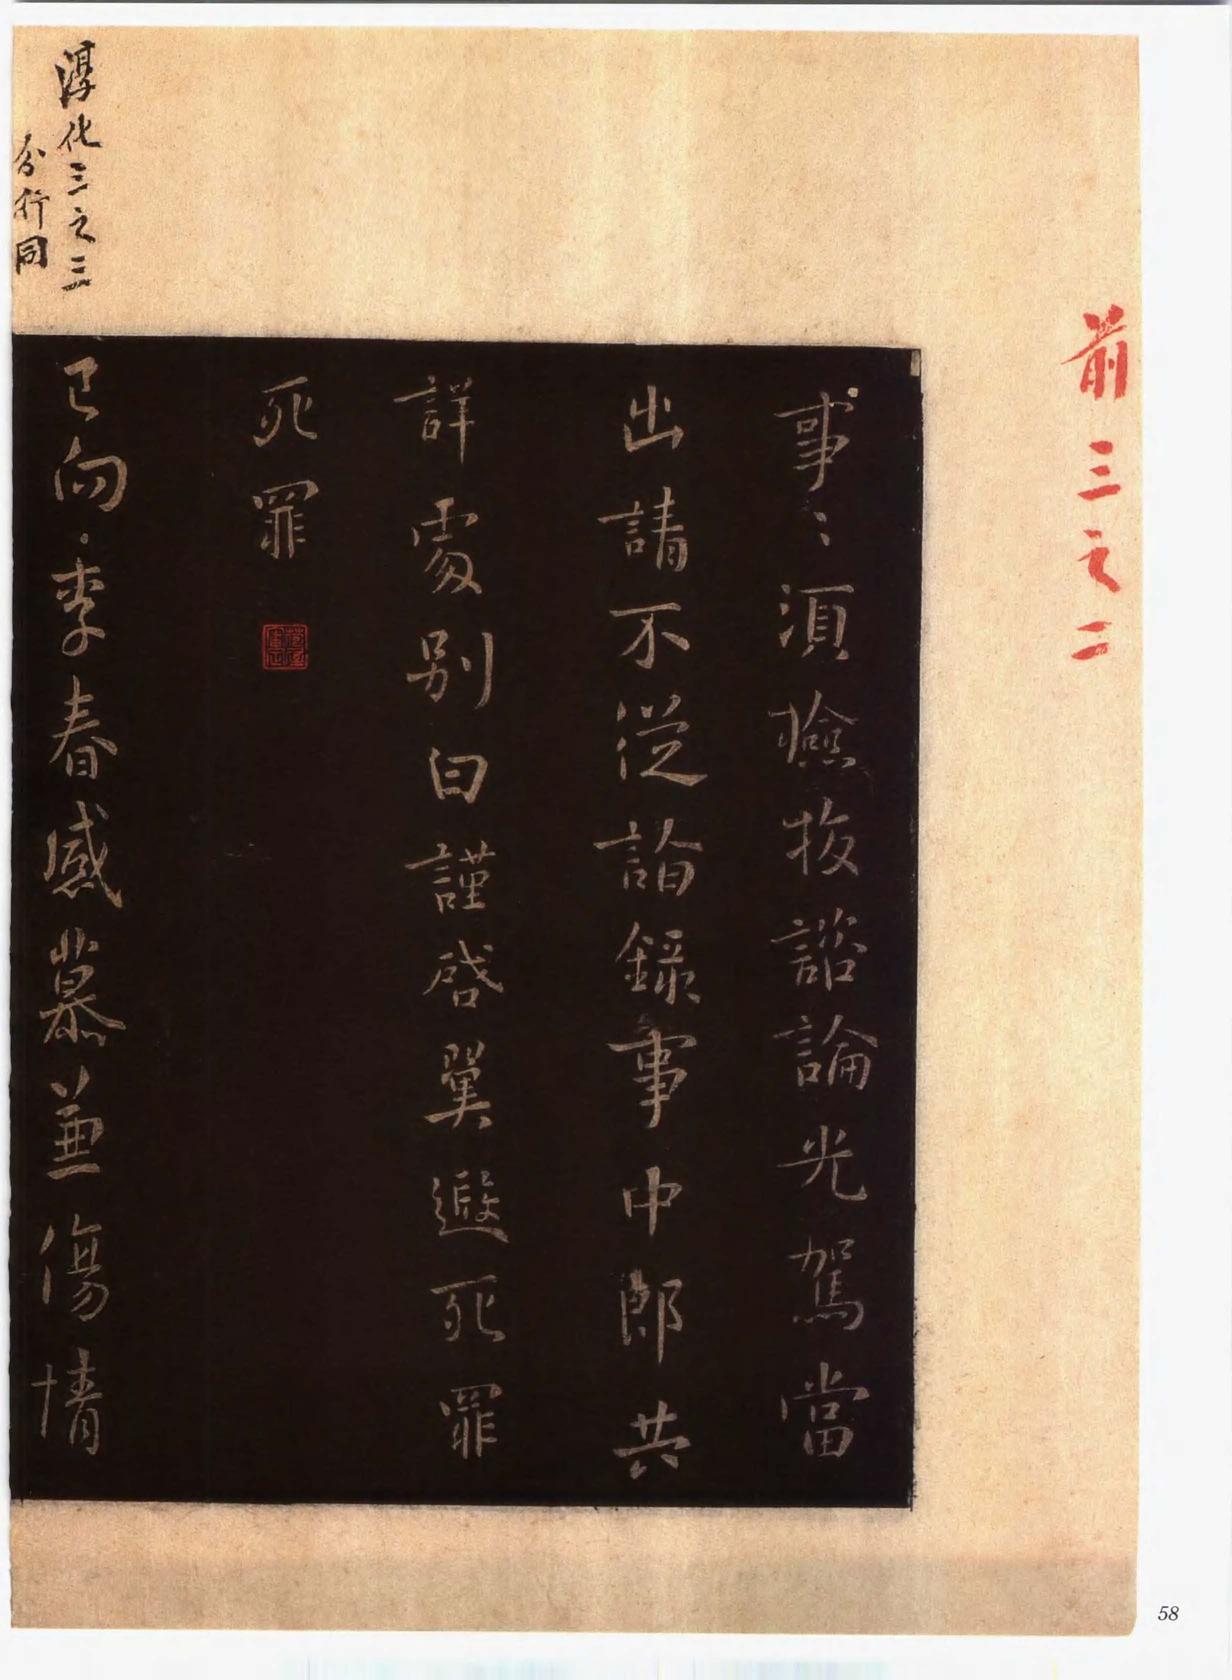 前三之二
事〻須撿挍諮論光駕當
出請不従詣錄事中郎共
詳處別白謹啓翼遜死罪
死罪
已向季春感慕兼傷情
淳化三之三
分行同
58